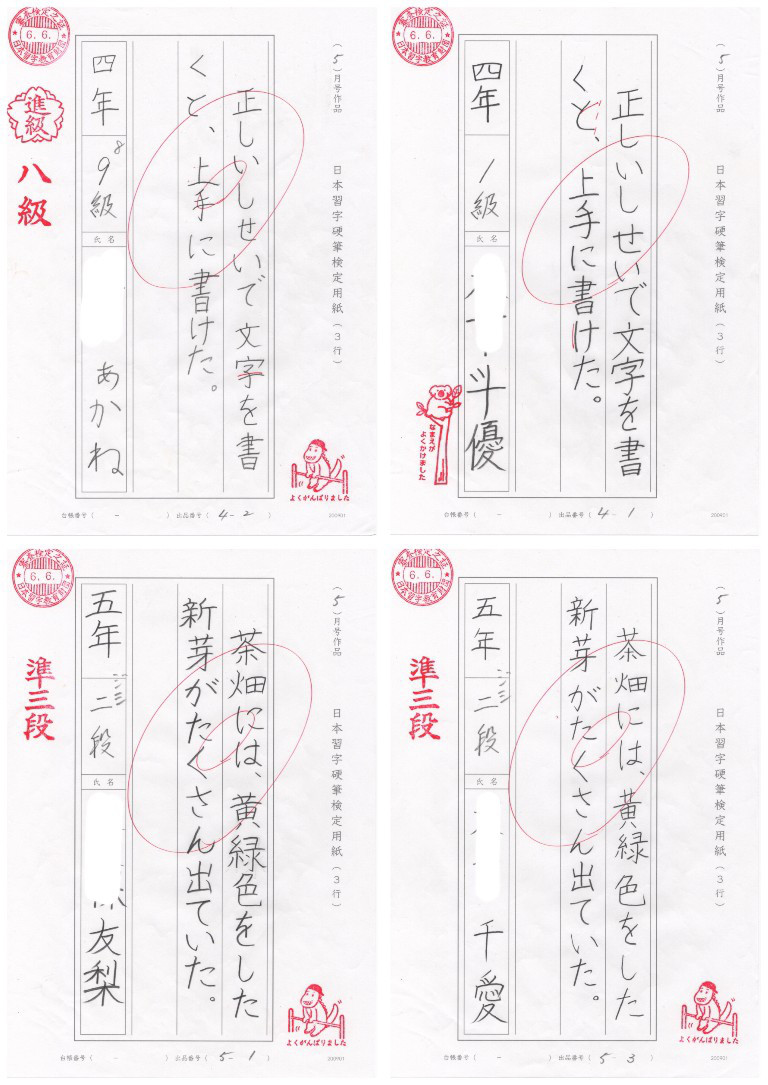 書奏検定之証
6.6.
日本習字教育財団
進級
八級
(5)月号作品
日本習字硬筆検定用紙(3行)
正しいしせいで文字を書
くと、上手に書けた。
四年
9級
8
氏名
あかね
よくがんばりました
台帳番号( - )
出品番号(4-2)
200901
6.6.
日本習字教育財団
(5)月号作品
日本習字硬筆検定用紙(3行)
正しいしせいで文字を書
くと、上手に書けた。
四年
1級
氏名
斗優
なまえが
よくかけました
台帳番号( - )
出品番号(4-1)
200901
6.6.
日本習字教育財団
準三段
(5)月号作品
日本習字硬筆検定用紙(3行)
茶畑には、黄緑色をした
新芽がたくさん出ていた。
五年
二段
氏名
友梨
よくがんばりました
台帳番号( - )
出品番号(5-1)
200901
6.6.
日本習字教育財団
準三段
(5)月号作品
日本習字硬筆検定用紙(3行)
茶畑には、黄緑色をした
新芽がたくさん出ていた。
五年
二段
氏名
千愛
よくがんばりました
台帳番号( - )
出品番号(5-3)
200901